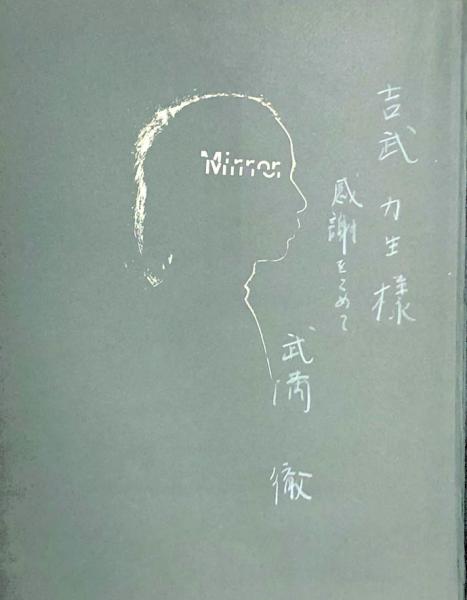 Mirror
吉武力生様
感謝をこめて
武満徹